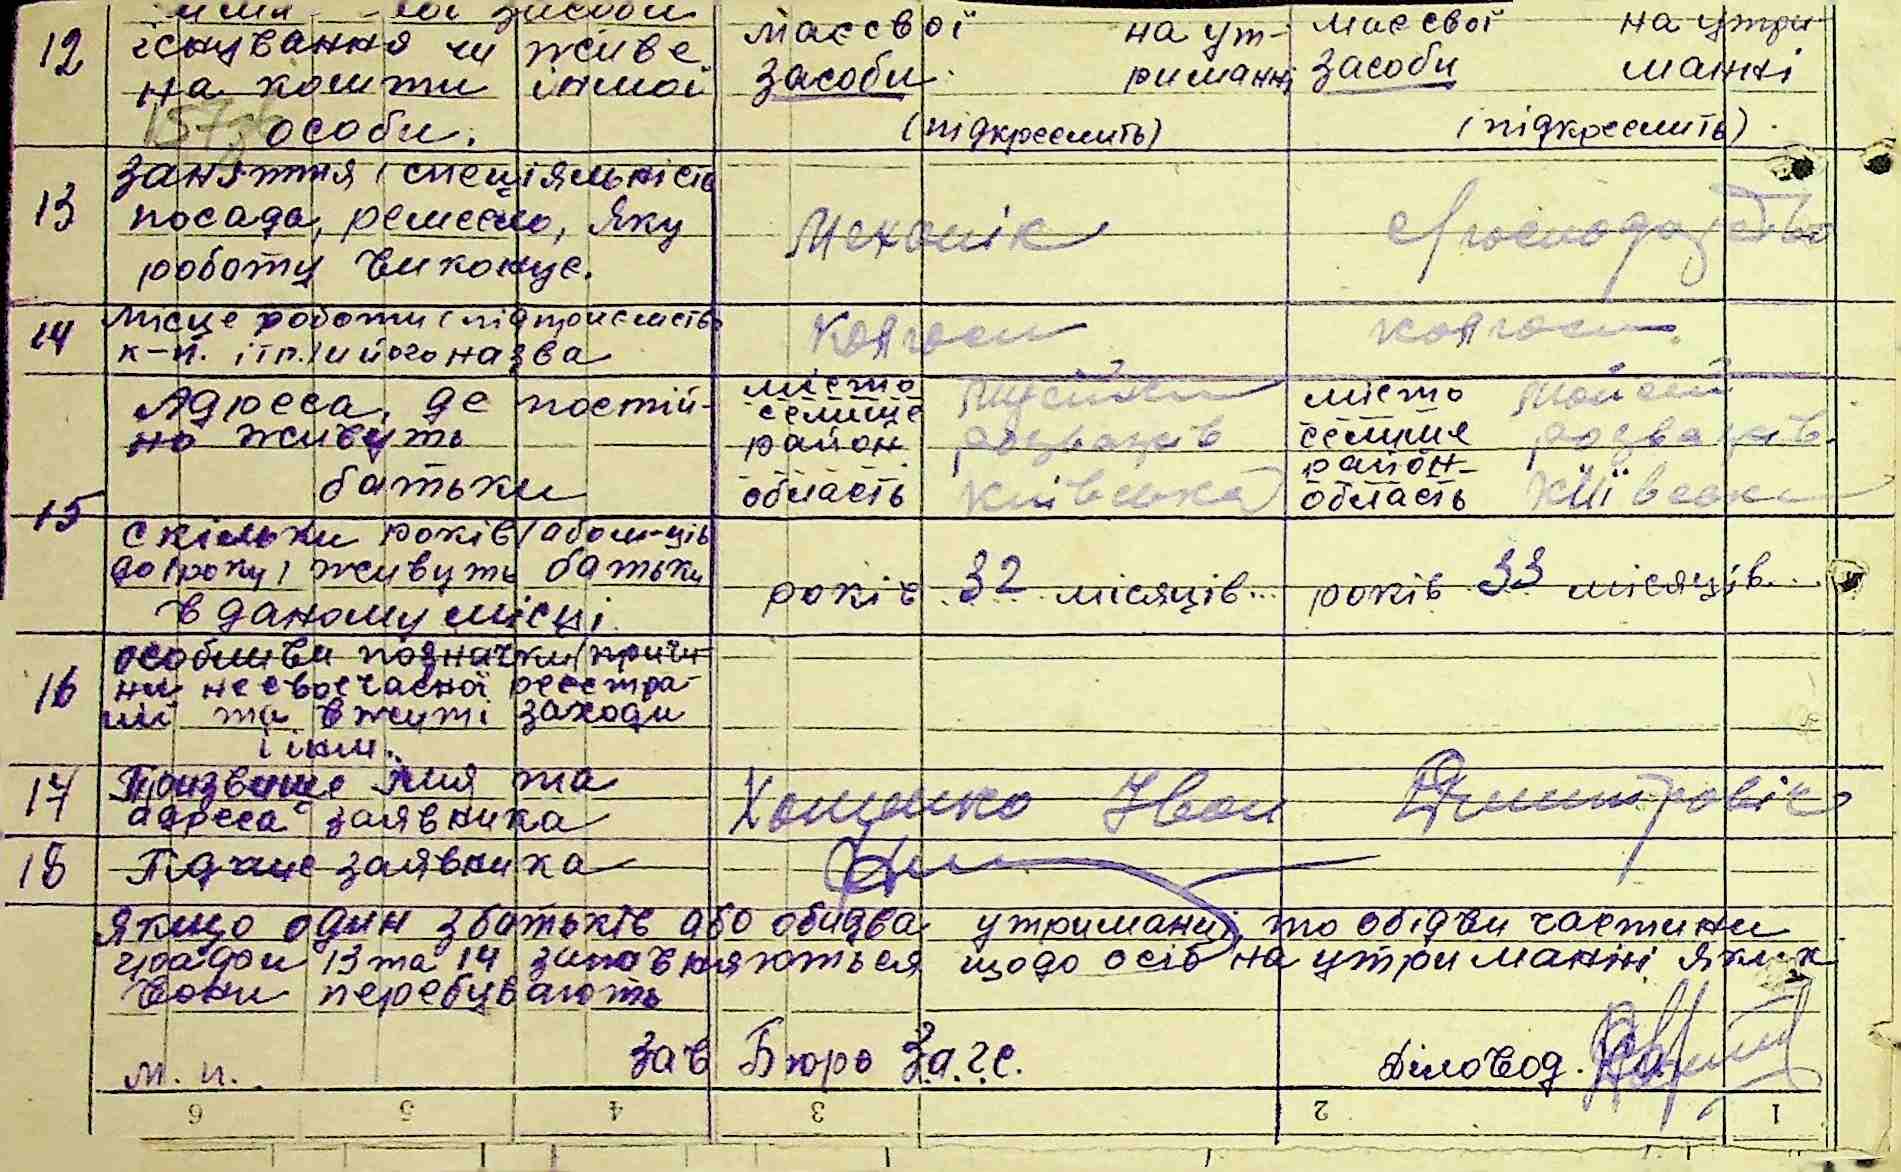 12
існування чи живе
на кошти іншої
особи.
має свої на ут-
засоби. риманні
(підкреслить)
має свої на утри
засоби манні
(підкреслить).
13
заняття (спеціяльність
посада, ремесло, яку
роботу виконує.
Механік
господарство
14
місце роботи (підприємств
к-п. і т.п.) и його назва
колгосп
колгосп.
15
Адреса, де постій-
но живуть
батьки
місто
селище
район розважів
область Київська
місто
селище розважів
район-
область Київськ
скільки років (або м-ців
до року) живуть батьки
в даному місці.
років 32 місяців...
років 33 місяців...
16
особливи позначки (причи-
ни несвоєчасної реєстра-
ції та вжиті заходи
і інш.
17
Прізвище імя та
адреса заявника
Хоменко Іван Дмитровіч
18
Підпис заявника
якщо один з батьків або обидва утриманці, то обідви частини
графи 13 та 14 заповняються щодо осіб на утриманні яких
вони перебувають
м. п. Зав Бюро Загс. Діловод.
6 5 4 3 2 1